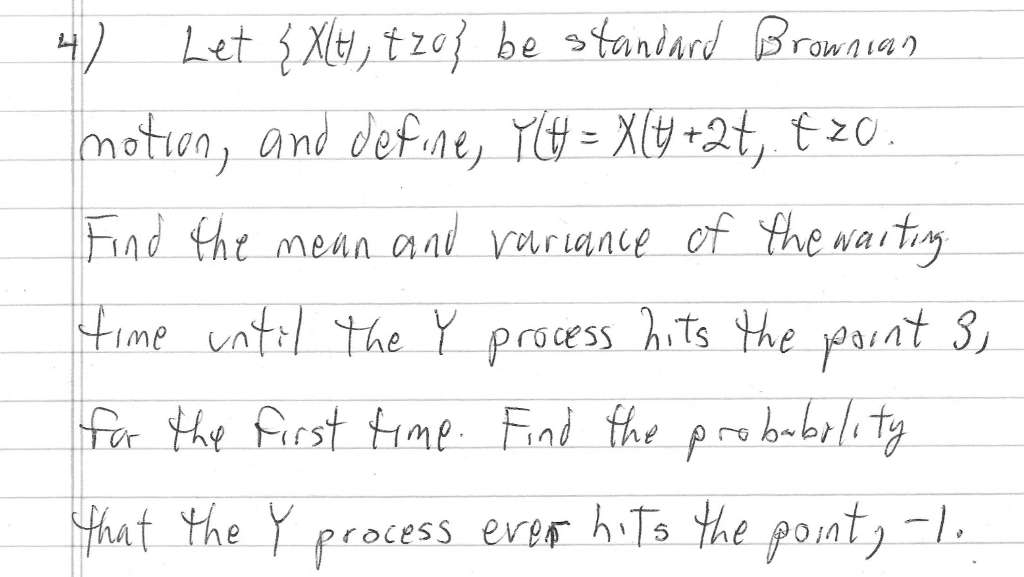 4) Let {X(t), t≥0} be standard Brownian
motion, and define, Y(t) = X(t) + 2t, t≥0.
Find the mean and variance of the waiting
time until the Y process hits the point 3,
for the first time. Find the probability
that the Y process ever hits the point, -1.